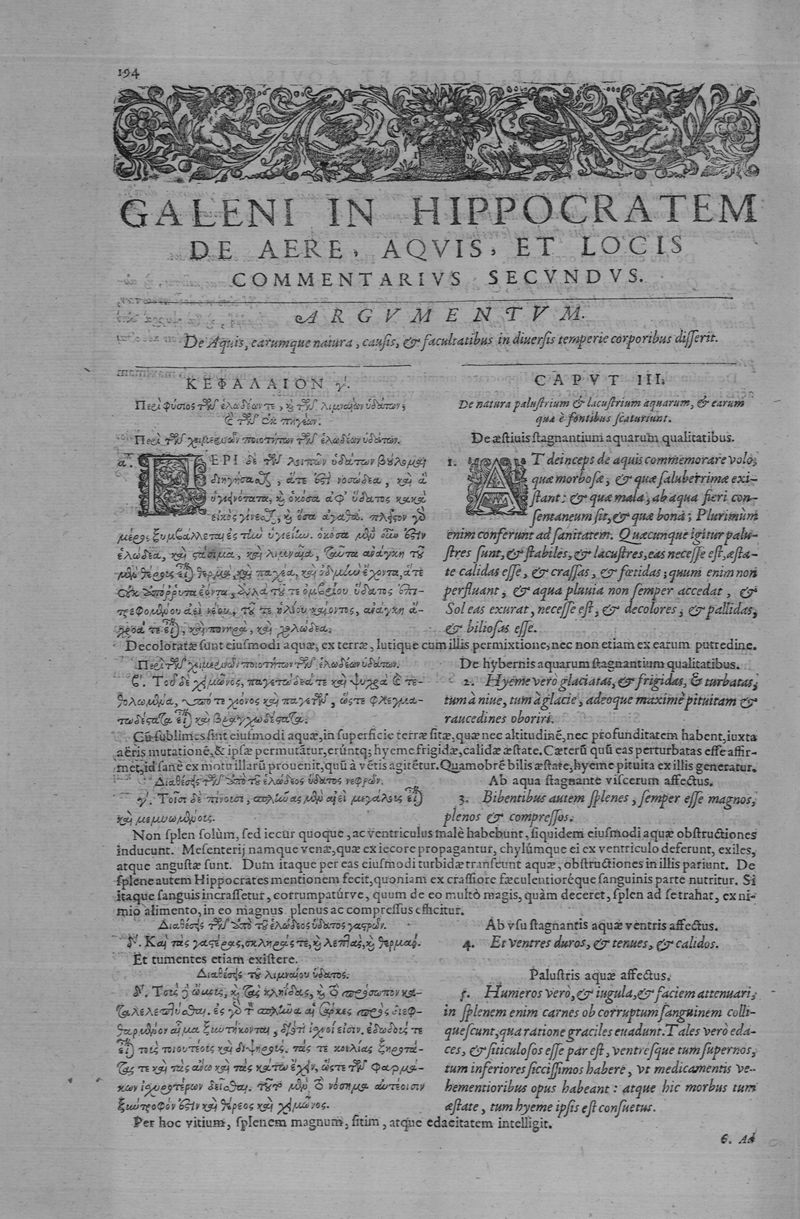 194
GALENI IN HIPPOCRATEM
DE AERE, AQVIS, ET LOCIS
COMMENTARIVS SECVNDVS.
ARGVMENTVM.
De Aquis, earumque natura, causis, & facultatibus in diuersis temperie corporibus disserit.
ΚΕΦΑΛΑΙΟΝ γ΄.
Περὶ φύσιος τῶν ἑλωδέων τε, καὶ τῶν λιμναίων ὑδάτων,
καὶ ἐκ πηγέων.
Περὶ τῶν ποιοτήτων τῶν ἑλωδέων ὑδάτων.
α. ΠΕΡΙ δὲ τῶν λειπῶν ὑδάτων βούλομαι
διηγήσασθαι, ἅτε ἐστὶ νοσώδεα, καὶ ἃ
ὑγιεινότατα, καὶ ὁκόσα ἀφ' ὕδατος κακὰ
εἰκὸς γίνεσθαι, καὶ ὅσα ἀγαθά. πλῆστον γὰρ
μέρος ξυμβάλλεται ἐς τὴν ὑγιείην. ὁκόσα μὲν οὖν ἐστὶν
ἑλώδεα, καὶ στάσιμα, καὶ λιμναῖα, ταῦτα ἀνάγκη τοῦ
μὲν θέρεος εἶναι θερμὰ, καὶ παχέα, καὶ ὀδμὴν ἔχοντα, ἅτε
οὐκ ἀπόρρυτα ἐόντα, ἀλλὰ τοῦ τε ὀμβρίου ὕδατος ἐπι-
τρεφομένου ἀεὶ νέου, τοῦ τε ἡλίου καίοντος, ἀνάγκη ἄ-
χροά τε εἶναι, καὶ πονηρὰ, καὶ χολώδεα.
CAPVT III.
De natura palustrium & lacustrium aquarum, & earum
quæ è fontibus scaturiunt.
De æstiuis stagnantium aquarum qualitatibus.
1. AT deinceps de aquis commemorare volo,
quæ morbosæ, & quæ saluberrimæ exi-
stant: & quæ mala, ab aqua fieri con-
sentaneum sit, & quæ bona; Plurimùm
enim conferunt ad sanitatem. Quæcunque igitur palu-
stres sunt, & stabiles, & lacustres, eas necesse est, æsta-
te calidas esse, & crassas, & fœtidas; quum enim non
perfluant, & aqua pluuia non semper accedat, &
Sol eas exurat, necesse est, & decolores, & pallidas,
& biliosas esse.
Decoloratæ sunt eiusmodi aquæ, ex terræ, lutique cum illis permixtione, nec non etiam ex earum putredine.
Περὶ τῶν χειμερινῶν ποιοτήτων τῶν ἑλωδέων ὑδάτων.
β. Τοῦ δὲ χειμῶνος, παγετώδεά τε καὶ ψυχρὰ καὶ τε-
θολωμένα, ὑπό τε χιόνος καὶ παγετῶν, ὥστε φλεγμα-
τωδέστατα εἶναι καὶ βραγχωδέστατα.
De hybernis aquarum stagnantium qualitatibus.
2. Hyeme verò glaciatas, & frigidas, & turbatas,
tum à niue, tum à glacie, adeoque maximè pituitam &
raucedines oboriri.
Cú sublimes sint eiusmodi aquæ, in superficie terræ sitæ, quæ nec altitudinē, nec profunditatem habent, iuxta
aëris mutationē, & ipsæ permutātur, erūntq; hyeme frigidæ, calidæ æstate. Cæterū quū eas perturbatas esse affir-
met, id sanè ex motu illarū prouenit, quū à vētis agitētur. Quamobrē bilis æstate, hyeme pituita ex illis generatur.
Διαθέσης τῶν ἀπὸ τοῦ ἑλώδεος ὕδατος νεφρῶν.
γ. Τοῖσι δὲ πίνουσι, σπλῆνας μὲν αἰεὶ μεγάλους εἶναι
καὶ μεμυωμένους.
Ab aqua stagnante viscerum affectus.
3. Bibentibus autem splenes, semper esse magnos,
plenos & compressos.
Non splen solùm, sed iecur quoque, ac ventriculus malè habebunt, siquidem eiusmodi aquæ obstructiones
inducunt. Mesenterij namque venæ, quæ ex iecore propagantur, chylúmque ei ex ventriculo deferunt, exiles,
atque angustæ sunt. Dum itaque per eas eiusmodi turbidæ transeunt aquæ, obstructiones in illis pariunt. De
splene autem Hippocrates mentionem fecit, quoniam ex crassiore fæculentioréque sanguinis parte nutritur. Si
itaque sanguis incrassetur, corrumpatúrve, quum de eo multò magis, quàm deceret, splen ad se trahat, ex ni-
mio alimento, in eo magnus plenus ac compressus efficitur.
Διαθέσης τῶν ἀπὸ τοῦ ἑλώδεος ὕδατος γαστρῶν.
δ. Καὶ τὰς γαστέρας, σκληράς τε, καὶ λεπτὰς, καὶ θερμάς.
Ab vsu stagnantis aquæ ventris affectus.
4. Et ventres duros, & tenues, & calidos.
Et tumentes etiam existere.
Διαθέσης τοῦ λιμναίου ὕδατος.
Τοὺς δὲ ὤμους, καὶ τὰς κληῖδας, καὶ τὸ πρόσωπον κα-
ταλελεπτύσθαι. ἐς γὰρ τὸν σπλῆνα αἱ σάρκες διεφ-
θαρμένον αἷμα ξυντήκονται, διότι ἰσχνοί εἰσιν. ἐδωδούς τε
εἶναι τοὺς τοιουτέους καὶ διψηρούς. τάς τε κοιλίας ξηροτά-
τας τε καὶ τὰς ἄνω καὶ τὰς κάτω ἔχειν, ὥστε τῶν φαρμά-
κων ἰσχυροτέρων δεῖσθαι. τοῦτο μὲν τὸ νόσημα αὐτέοισιν
ξύντροφόν ἐστιν καὶ θέρεος καὶ χειμῶνος.
Palustris aquæ affectus.
5. Humeros verò, & iugula, & faciem attenuari,
in splenem enim carnes ob corruptum sanguinem colli-
quescunt, qua ratione graciles euadunt. Tales verò eda-
ces, & siticulosos esse par est, ventresque tum supernos,
tum inferiores siccissimos habere, vt medicamentis ve-
hementioribus opus habeant: atque hic morbus tum
æstate, tum hyeme ipsis est consuetus.
Per hoc vitium, splenem magnum, sitim, atque edacitatem intelligit.
6. Ad